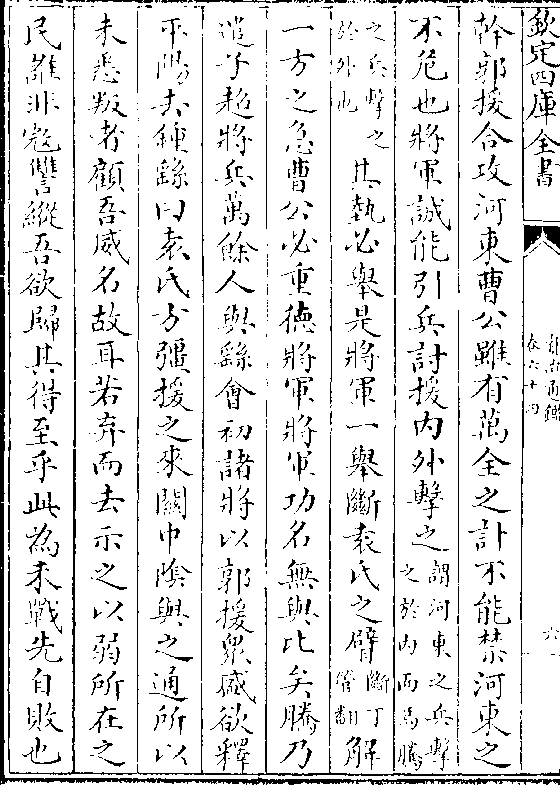 欽定四庫全書
資治通鑑
卷六十四
六
幹郭援合攻河東曹公雖有萬全之計不能禁河東之
不危也將軍誠能引兵討援内外擊之謂河東之兵擊之於内而馬騰
之兵擊之於外也其埶必舉是將軍一舉斷袁氏之臂斷丁管翻解
一方之急曹公必重德將軍將軍功名無與比矣騰乃
遣子超將兵萬餘人與繇會初諸將以郭援衆盛欲釋
平陽去鍾繇曰袁氏方彊援之來關中隂與之通所以
未悉叛者顧吾威名故耳若弃而去示之以弱所在之
民誰非寇讐縱吾欲歸其得至乎此為未戰先自敗也